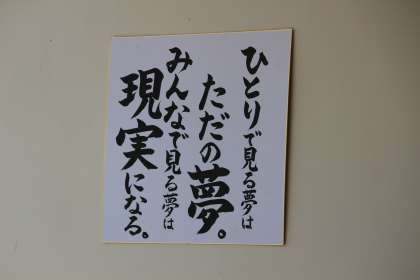 ひとりで見る夢は
ただの夢。
みんなで見る夢は
現実になる。